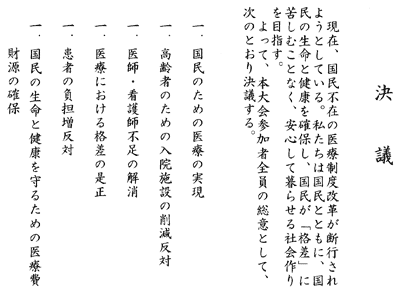 決議
現在、国民不在の医療制度改革が断行され
ようとしている。私たちは国民とともに、国
民の生命と健康を確保し、国民が「格差」に
苦しむことなく、安心して暮らせる社会作り
を目指す。
よって、本大会参加者全員の総意として、
次のとおり決議する。
一．国民のための医療の実現
一．高齢者のための入院施設の削減反対
一．医師・看護師不足の解消
一．医療における格差の是正
一．患者の負担増反対
一．国民の生命と健康を守るための医療費
財源の確保